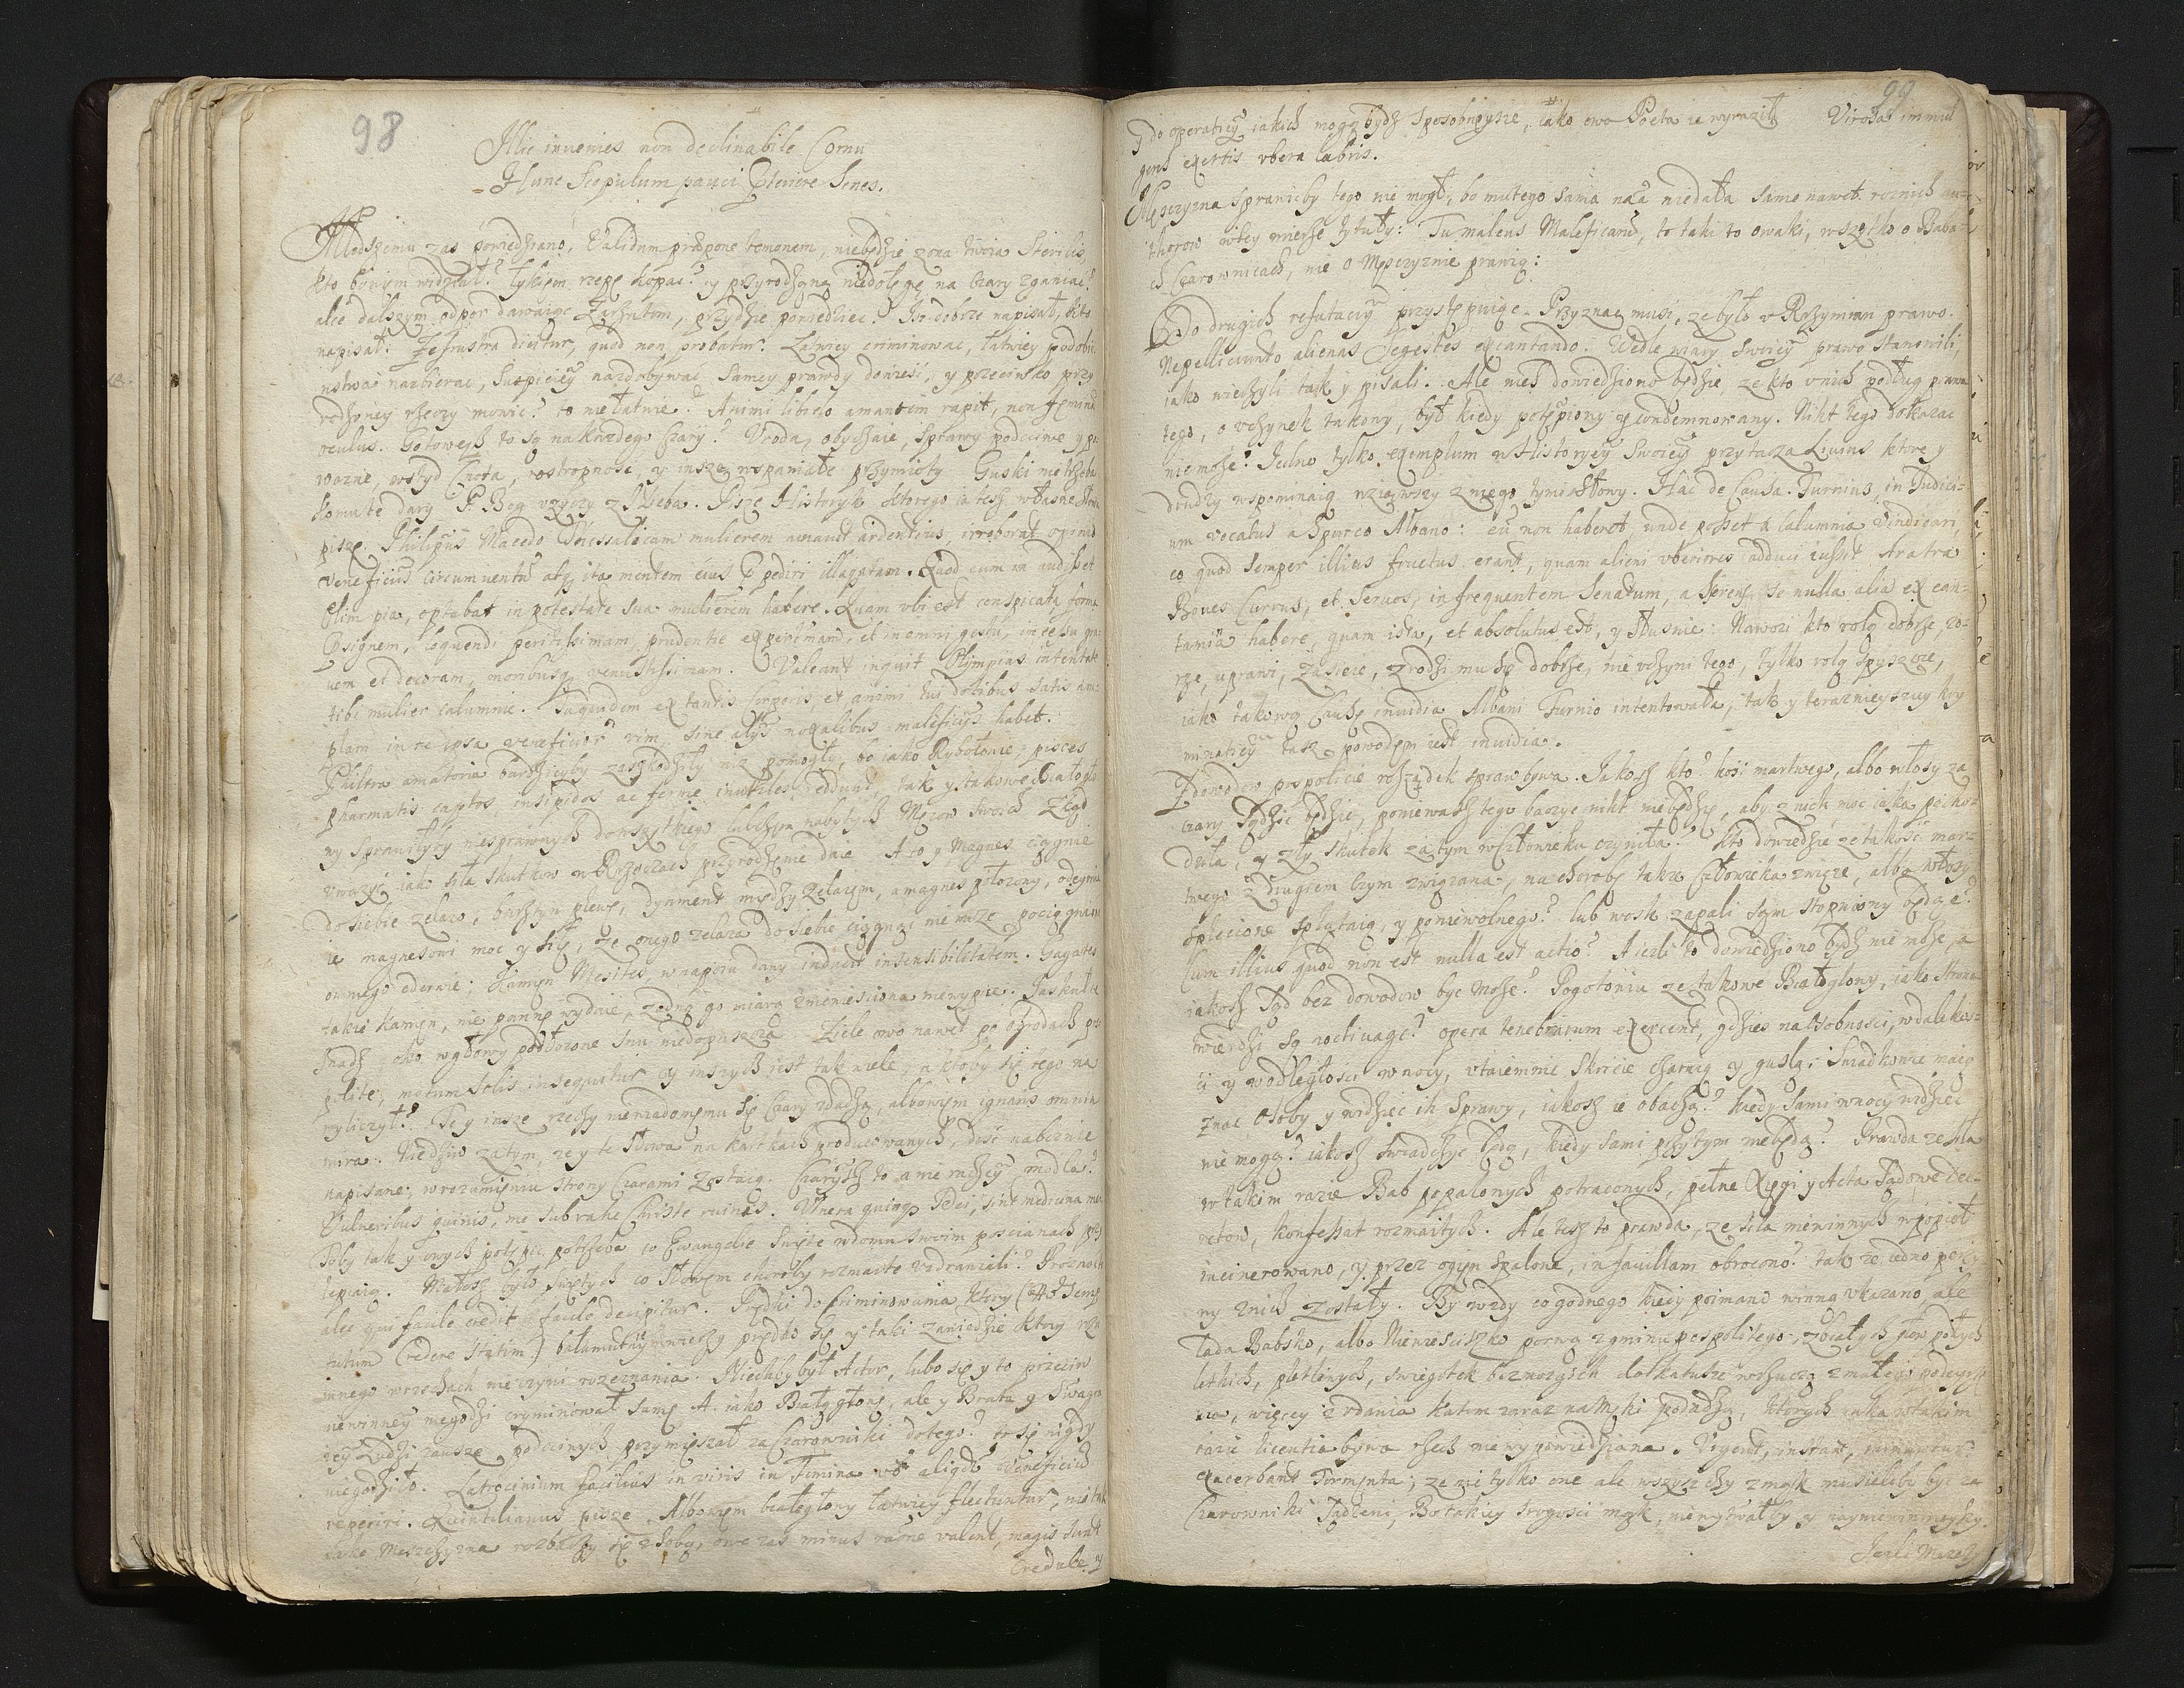 98
Illic invenies non declinabile Cornu
Hunc Scopulum pauci  Senes.
Młodszemu zas powiedziano, Validum  temonem, niebędzie zona twoia Sterilis,
kto  widział? Łykiem rzepę kopac? y przyrodzoną niedołęgę na Czary zganiac?
alec dalszym odpor dawaiąc Zarzutom, przydzie powiedziec. Iż dobrze napisał, kto
napisał: Ze frustra dicitur, quod non probatur. Łatwiey criminowac, łatwiey podobie
nstwa nazbierac, Suspiciey nazdobywać Samey prawdy doniesć, y przeciwko przy
rodzoney rzeczy mowic? to niełatwie. Animi libido amantem rapit, non
oculus. Gotoweysz to są nakażdego Czary? Uroda, obyczaie, Sprawy podciwe y po
wazne, wstyd Cnota, rostropnosc, y insze wspaniałe przymioty Guski nietrzeba
komu te dary P. Bog uzyczy z Nieba. Pisze Historyk ktorego ia tesz własne Słowa
piszę. Philipus Macedo Thessalicam mulierem amavit ardentius, irroborat opinio
veneficijs circumventu atq; ita mentem eius  illaqatam. Quod cum  audisset
Olim pia, optabat in potestate sua mulierem habere. Quam vbi est conspicata, forma
insignem, loquendi peritissimam, prudentie , et in omni gestu, incessu gra
vem et decoram, moribusq; venustissimam. Valeant inquit Olympias intentate
tibi mulier calumnie. Siquidem ex tantis corporis, et animi tui dotibus satis am
plam in te ipsa veneficior vim, sine alijs noxalibus maleficijs habes.
Philtra amatoria bardzieyby zaszkodziły niz pomogły, bo iako Rybołowie pisces
pharmatis captos, insipidos ac ferme inutiles reddunt, tak y takowe Białogło
wy sprawiłyby niesprawnych dowszytkiego lubczym nabytych Męzow swoich. Ztąd
vwazyć iako siła skutkow w Rzeczach przyrodzenie daie. A to y Magnes ciągnie
do siebie zelazo, bursztyn plewę, dyament między zelazem, a magnes połozony, odeymu
ie magnesowi moc y siłę, ze onego zelaza do siebie ciągnąc nie moze, pociągnion
onemego oderwie; Kamyn Mesites, w napoiu dany inducit insensibilitatem. Gagates
takze kamyn, nie pannę wydaie, zadną go miarą  niewypie. Jaskułcze
snadz oko w głowy podłozone snu niedopuszcza. Ziele owo nawet po ogrodach pos
polite, motum Solis insequitur y inszych iest tak wiele, a ktoby się tego na
wyliczył? Te y insze rzeczy niewiadomemu się Czary zdadzą, albowiem ignaris omnia
mira. Niedziw zatym, ze y te słowa na kartkach producowanych, dosc nabożnie
napisane, w rozumieniu strony Czarami zostaią. Czarysz to a nie raczey modła?
Vulneribus quinis, me subtrahe Christe ruinis. Vlnera quinq; Dei, sint medicina mei
Toby tak y onych potępic potrzeba co Ewangelie święte wdomu swoim poscianach przy
lepiaią. Małosz było swiętych co słowem choroby rozmaite vzdrawiali? Prozno to
alec qui facile credit & facile decipitur. Prędki do criminowania ktory  semp
tutum credere statim) bałamutny wierszy prędko się y taki zawiedzie ktory 
innego w rzeczach nie czyni rozeznania. Niechby był Actor, lubo się y to przeciw
niewinney niegodzi cryminował samę A. iako Białągłowę, ale y Brata y Swagra
iey Ludzi zawsze podciwych przymięszał za Czarowniki dotego? to się nigdy
niegodziło. Latrocinium facilius in viris in Femina vo aliqd Veneficiu
reperiri. Quintilianus pisze Albowiem białegłowy łatwiey flectuntur, niz tak
iako Meszczyzna rozbałby się z sobą, one zas minus racione valent, magis sunt
credule y
99
y do operatiey iakich mogą bydz sposobnieysze, iako ewo Poeta ie wyraził Virosa immul
gens exertis vbera labris.
Męsczyzna sprawicby tego nie mogł, bo mu tego sama nã a niedała same nawet roznich au
thorow  tytuły: Tu maleus Maleficaru, to taki to owaki, wszytko o Baba
ch Czarownicach, nie o Męsczyznie prawią:
Do drugich refutaciy przystępuiąc. Przyznac musi, ze było v Rzymian prawo.
Nepelliciunto alienas Segestes excantando. Wedle wiary swoiey prawo stanowili,
iako wierzyli tak y pisali. Ale nies dowiedziono będzie ze kto vnich podług prawa
tego, o vczynek takowy, był kiedy potępiony y condemnowany. Niht tego dokazac
niemoże? Jedno tylko exemplum w Historyey swoiey przytacza Livius ktore y
drudzy wspominaią wziąwszy z niego tymi słowy. Hac de Causa. Furnius in Judici=
um vocatus a Spurco Albano: cũ non haberet unde posset a calumnia vindicari,
eo quod semper illius fructus erant, quam alieni vberiores adduci iussit Aratra
Boves Currus, et servos, in frequentem Senatum, a serens se nulla alia ex can=
tamia habere, quam ista, et absolutus est, y słusnie: Nawozi kto rolą dobrze, zo=
rze, uprawi, zasieie, zrodzi mu się dobrze, nie vczyni tego, tylko rolą spyszcze,
iako takową Causę invidia Albani Furnio intentowała, tak y teraznieyszey kry
minatiey tasz powodem iest invidia.
Z dowodow pospolicie rosządek spraw bywa. Jakosz kto? kosci martwego, albo włosy za
czary Sądzić będzie, poniewasz tego baczyc niht niebędzie, aby z nich moc iaka pocho=
dziła, y zły skutek zatym w Człowieku czyniła? Kto dowiedzie że takosc mar=
twego z drugiem czym związana, na chorobę także Człowieka zwięże, albo włosy
splecione splątaią, y poniewolnego? lub wosk zapali Sym stopniony będąc?
Cum illius quod non est nulla est actio? A iesli to dowiedziono bydz nie może, a
iakosz Sąd bez dowodow byc może? Pogotowiu ze takowe Białogłowy, iako Strona
twierdzi są noctivagæ? opera tenebrarum exercent, gdzies na osobnosci, w dalekos=
ci y w odległosci w nocy, vtaiemnie skrycie czaruią y guslą; Swiadkowie maią
znac Osoby y widziec ih sprawy, iakosz ie obaczą? kiedy sami wnocy widziec
nie mogą? iakosz swiadczyc będą, kiedy sami przytym niebędą? Prawda ze siła
w takim razie Bab popalonych potraconych, pełne Xięgi y Acta Sądowe dec=
retow, konfessat rozmaitych. Ale tesz to prawda, ze siła niewinnych w popioł
incinerowano, y przez ogien spalone, in favillam obrocono? tak ze iedno perzy
ny z nich zostały. By wzdy co godnego kiedy poimano winną vkazano, ale
lada Babsko, albo Niewiescisko porwą z gminu pospolitego, z białych głow 
letkich, pletliwych, swiegotek bezmozgich do Katusze wrzucą, z małey podeyrze
nia, więcey z vdania Katom zaraz na Męki podadzą, ktorych iaka w takim
razie licentia bywa rzecz niewypowiedziana. Vrgent, instant, 
exacerbant Tormenta; ze nietylko one ale wszyszczy z mąk musieliby byc za
Czarowniki Sądzeni, Bo takiey srogosci mąk, niewytrwałby y nayniewinnieyszy.
Jesli Masz